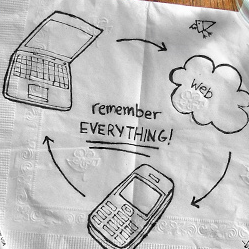 Web
remember
EVERYTHING!